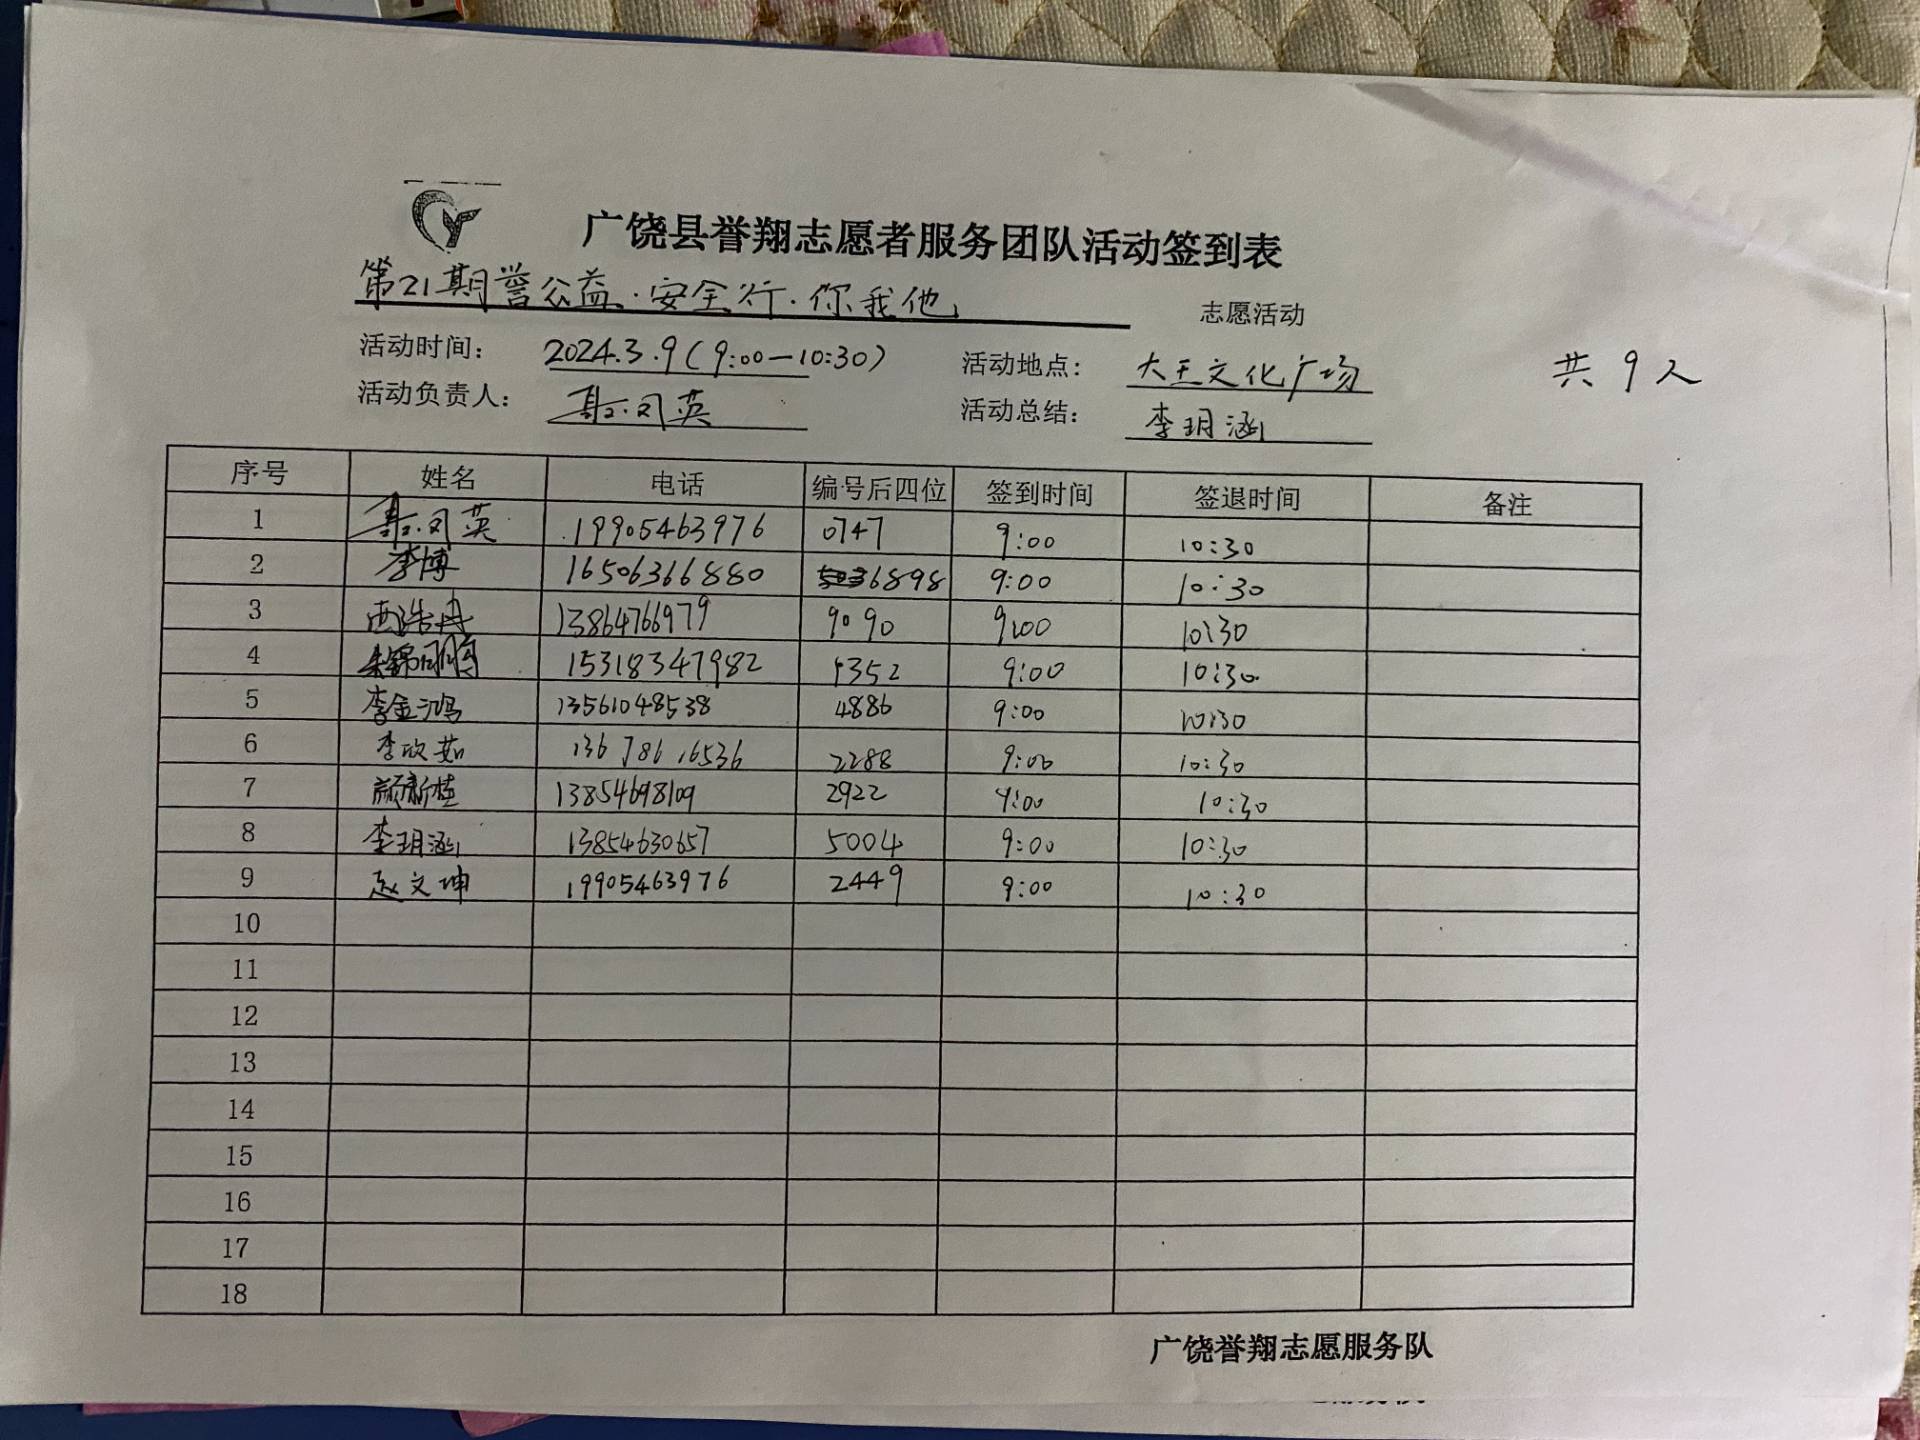 广饶县誉翔志愿者服务团队活动签到表
第21期誉公益·安全行·你我他 志愿活动
活动时间: 2024.3.9(9:00—10:30) 活动地点: 大王文化广场 共9人
活动负责人: 聂凤英 活动总结: 李玥涵
序号 姓名 电话 编号后四位 签到时间 签退时间 备注
1 聂凤英 19905463976 0747 9:00 10:30
2 李博 16506366880 6898 9:00 10:30
3 13864766979 9090 9:00 10:30
4 15318347982 9:00 10:30
5 李金鸿 13561048538 4886 9:00 10:30
6 李欣茹 13678616536 2288 9:00 10:30
7 颜新桂 13854698109 2922 9:00 10:30
8 李玥涵 13854630657 5004 9:00 10:30
9 赵文坤 19905463976 2449 9:00 10:30
10
11
12
13
14
15
16
17
18
广饶誉翔志愿服务队